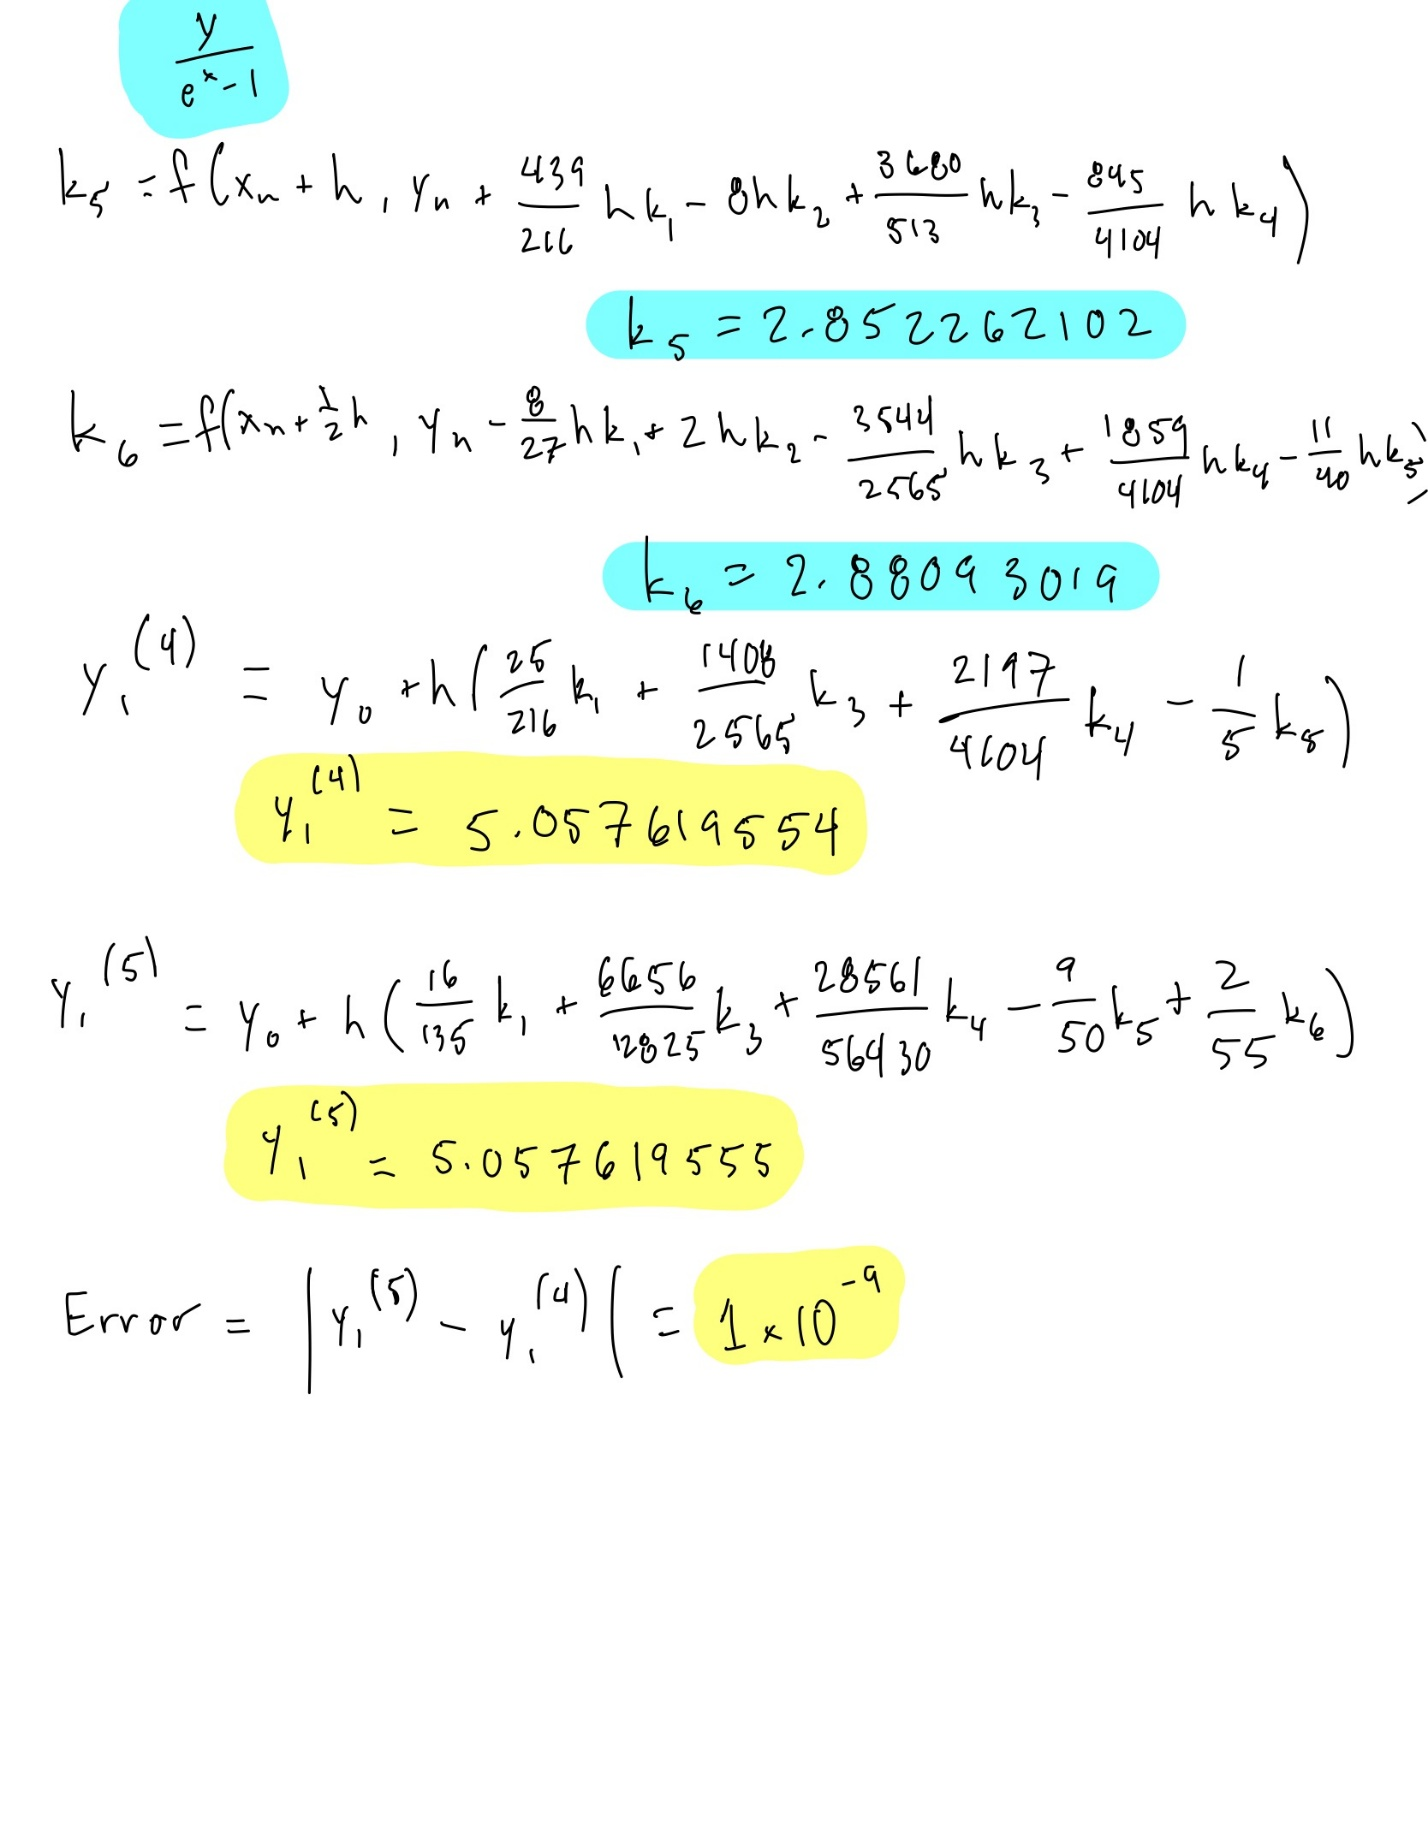 y / (e^x - 1)
k₅ = f(xₙ + h, yₙ + 439/216 hk₁ - 8hk₂ + 3680/513 hk₃ - 845/4104 hk₄)
k₅ = 2.852262102
k₆ = f(xₙ + 1/2 h, yₙ - 8/27 hk₁ + 2hk₂ - 3544/2565 hk₃ + 1859/4104 hk₄ - 11/40 hk₅)
k₆ = 2.88093019
y₁^(4) = y₀ + h(25/216 k₁ + 1408/2565 k₃ + 2197/4104 k₄ - 1/5 k₅)
y₁^(4) = 5.057619554
y₁^(5) = y₀ + h(16/135 k₁ + 6656/12825 k₃ + 28561/56430 k₄ - 9/50 k₅ + 2/55 k₆)
y₁^(5) = 5.057619555
Error = |y₁^(5) - y₁^(4)| = 1 × 10^-9